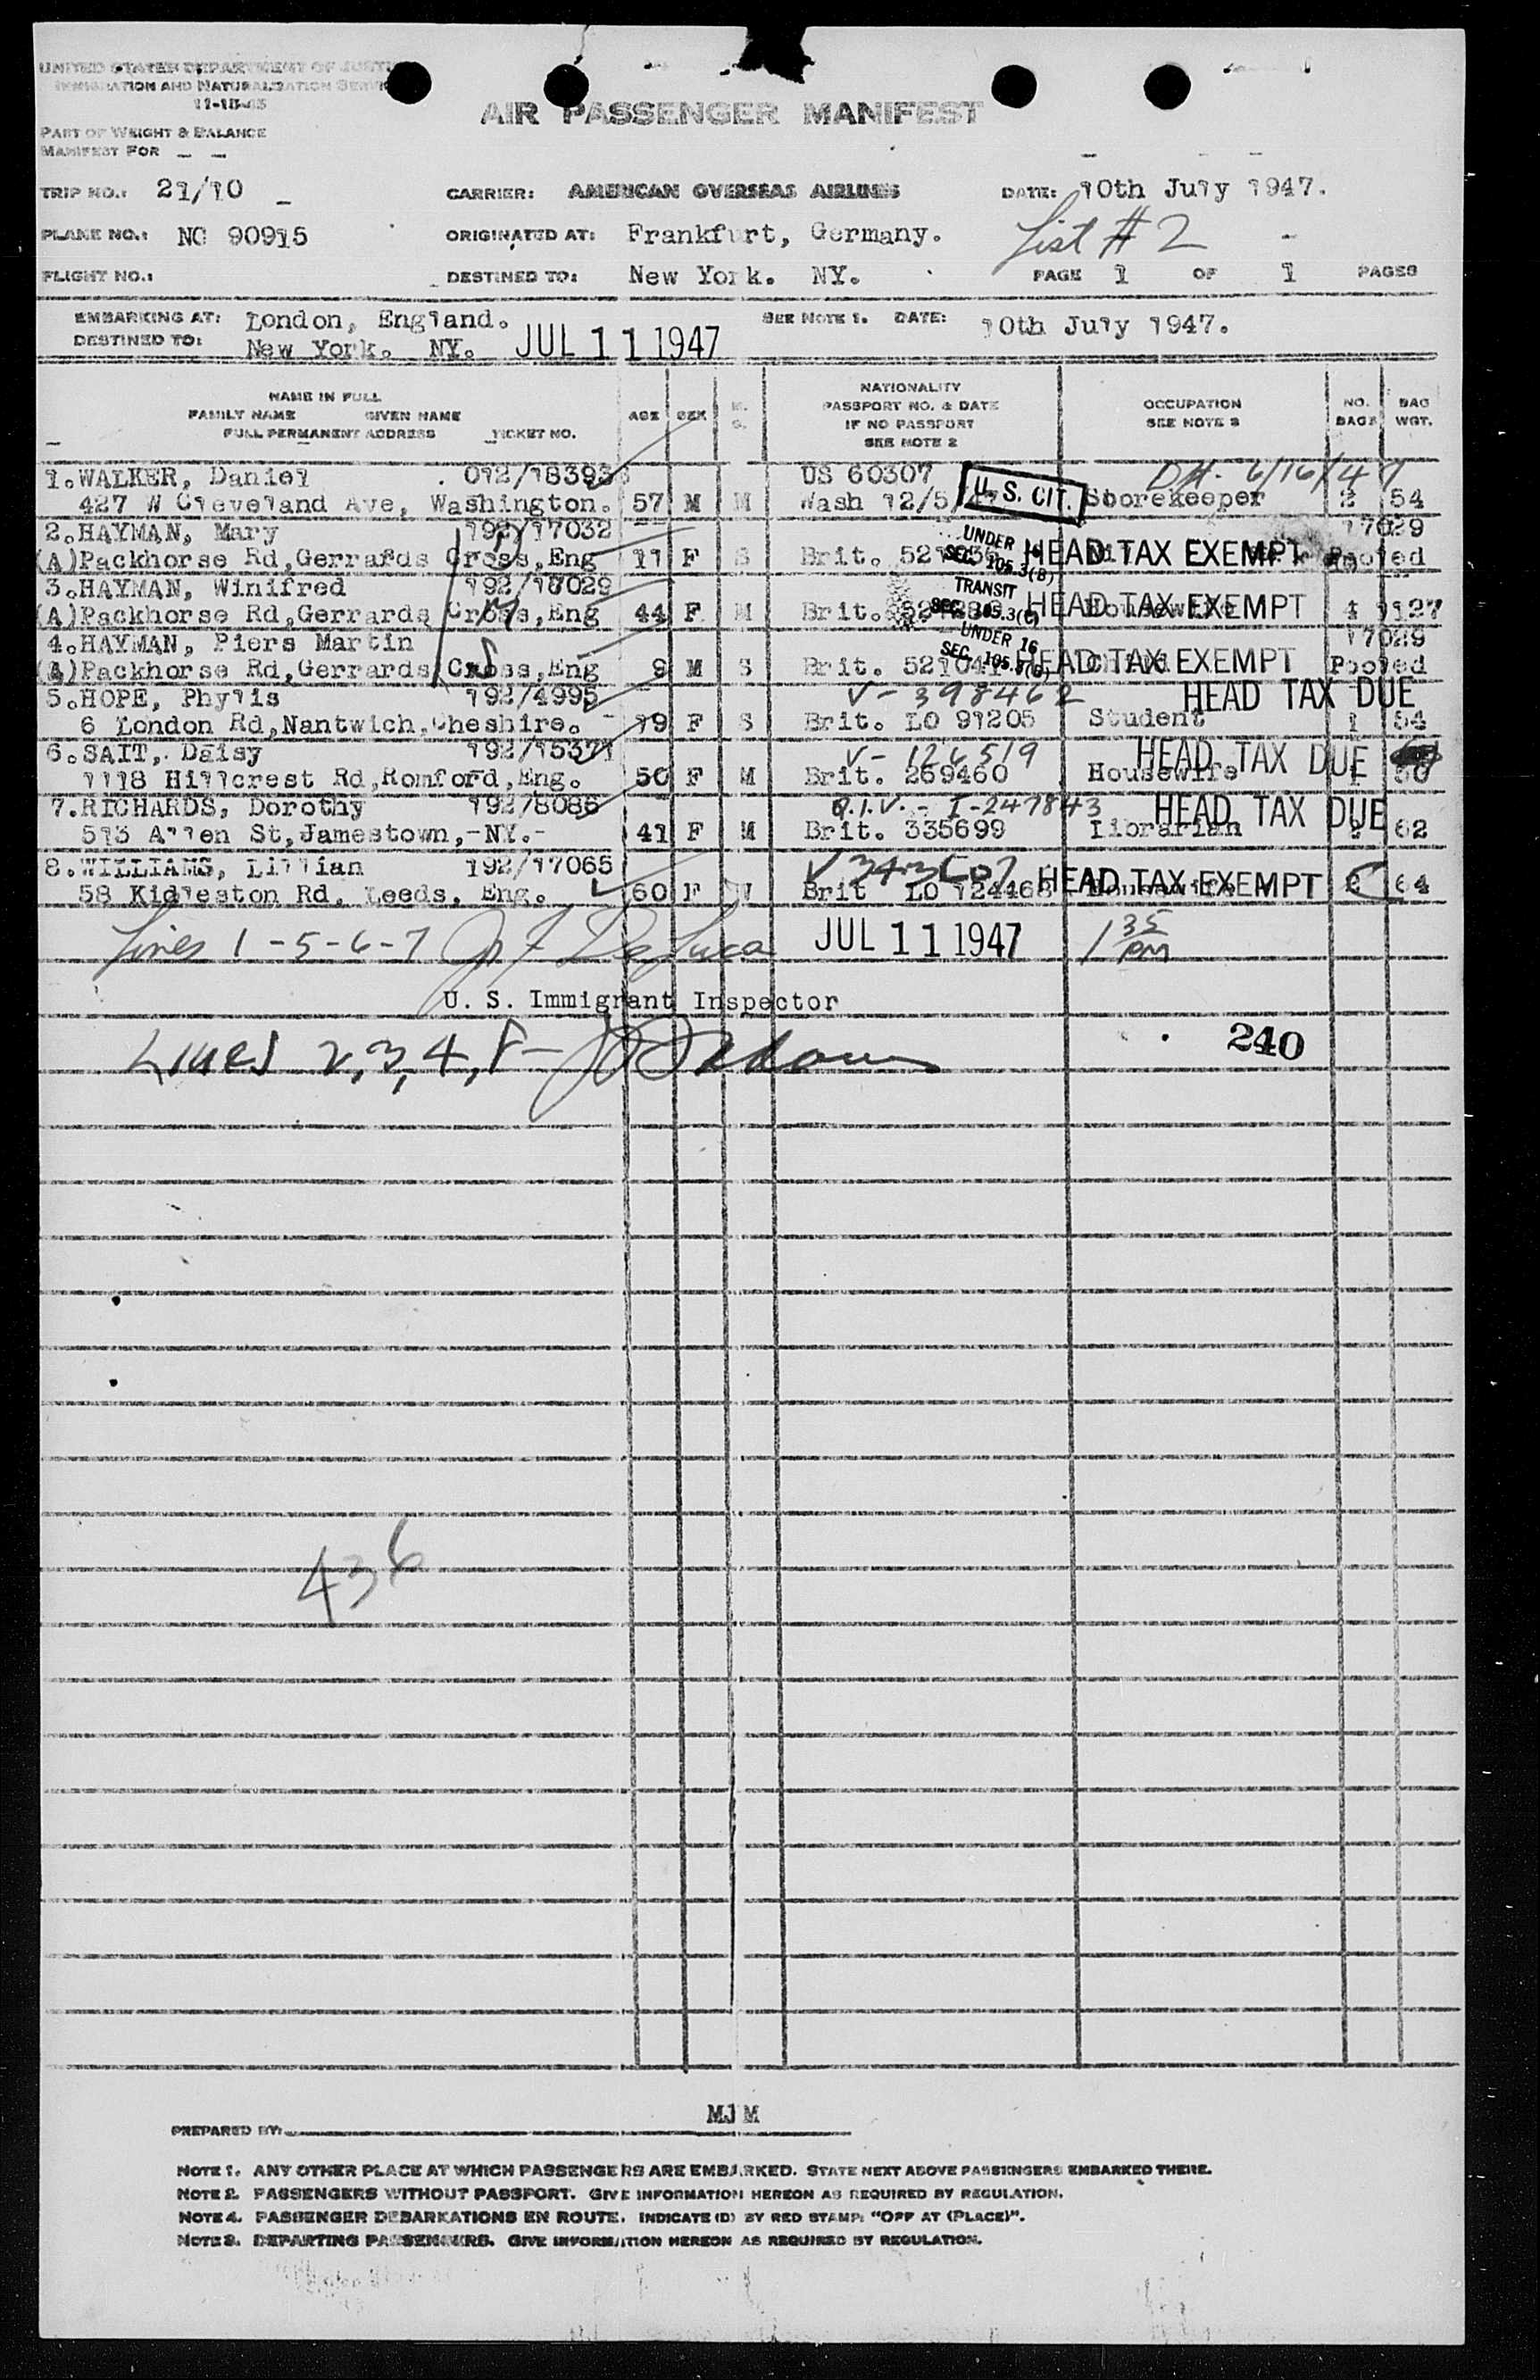 UNITED STATES DEPARTMENT OF JUSTICE
IMMIGRATION AND NATURALIZATION SERVICE
11-15-45
AIR PASSENGER MANIFEST
PART OF WEIGHT & BALANCE
MANIFEST FOR
TRIP NO.: 21/10 CARRIER: AMERICAN OVERSEAS AIRLINES DATE: 10th July 1947.
PLANE NO.: NC 90915 ORIGINATED AT: Frankfurt, Germany. List # 2
FLIGHT NO.: DESTINED TO: New York. NY. PAGE 1 OF 1 PAGES
EMBARKING AT: London, England. SEE NOTE 1. DATE: 10th July 1947.
DESTINED TO: New York. NY. JUL 11 1947
NAME IN FULL
FAMILY NAME GIVEN NAME
FULL PERMANENT ADDRESS TICKET NO.
AGE SEX M. S.
NATIONALITY
PASSPORT NO. & DATE
IF NO PASSPORT
SEE NOTE 2
OCCUPATION
SEE NOTE 3
NO. BAGS
BAG WGT.
1.WALKER, Daniel 012/18393 US 60307 6/16/47
427 W Cleveland Ave, Washington. 57 M M Wash 12/5/ U.S. CIT. Storekeeper 2 54
2.HAYMAN, Mary 192/17032 17029
(A)Packhorse Rd,Gerrards Cross,Eng 11 F S Brit. UNDER 16 SEC. 105.3(B) HEAD TAX EXEMPT Pooled
3.HAYMAN, Winifred 192/18029 TRANSIT
(A)Packhorse Rd,Gerrards Cross,Eng 44 F M Brit. SEC. 105.3(C) HEAD TAX EXEMPT Housewife 4 127
4.HAYMAN, Piers Martin UNDER 16 17029
(A)Packhorse Rd,Gerrards Cross,Eng 9 M S Brit. SEC. HEAD TAX EXEMPT Pooled
5.HOPE, Phylis 192/4995 V-398462 HEAD TAX DUE
6 London Rd,Nantwich,Cheshire. 19 F S Brit. LO 91205 Student 1 54
6.SAIT, Daisy 192/15371 V-126519 HEAD TAX DUE
1118 Hillcrest Rd,Romford,Eng. 50 F M Brit. 269460 Housewife 1
7.RICHARDS, Dorothy 192/8086 Q.I.V. - I-247843 HEAD TAX DUE
513 Allen St,Jamestown,-NY.- 41 F M Brit. 335699 Librarian 2 62
8.WILLIAMS, Lillian 192/17065 HEAD TAX EXEMPT
58 Kidleston Rd, Leeds, Eng. 60 F W Brit LO 124468 Housewife 64
Lines 1-5-6-7 JUL 11 1947 1 35 PM
U. S. Immigrant Inspector
Lines 2,3,4,8- 240
436
PREPARED BY: MJM
NOTE 1. ANY OTHER PLACE AT WHICH PASSENGERS ARE EMBARKED. STATE NEXT ABOVE PASSENGERS EMBARKED THERE.
NOTE 2. PASSENGERS WITHOUT PASSPORT. GIVE INFORMATION HEREON AS REQUIRED BY REGULATION.
NOTE 4. PASSENGER DEBARKATIONS EN ROUTE. INDICATE (D) BY RED STAMP: "OFF AT (PLACE)".
NOTE 3. DEPARTING PASSENGERS. GIVE INFORMATION HEREON AS REQUIRED BY REGULATION.